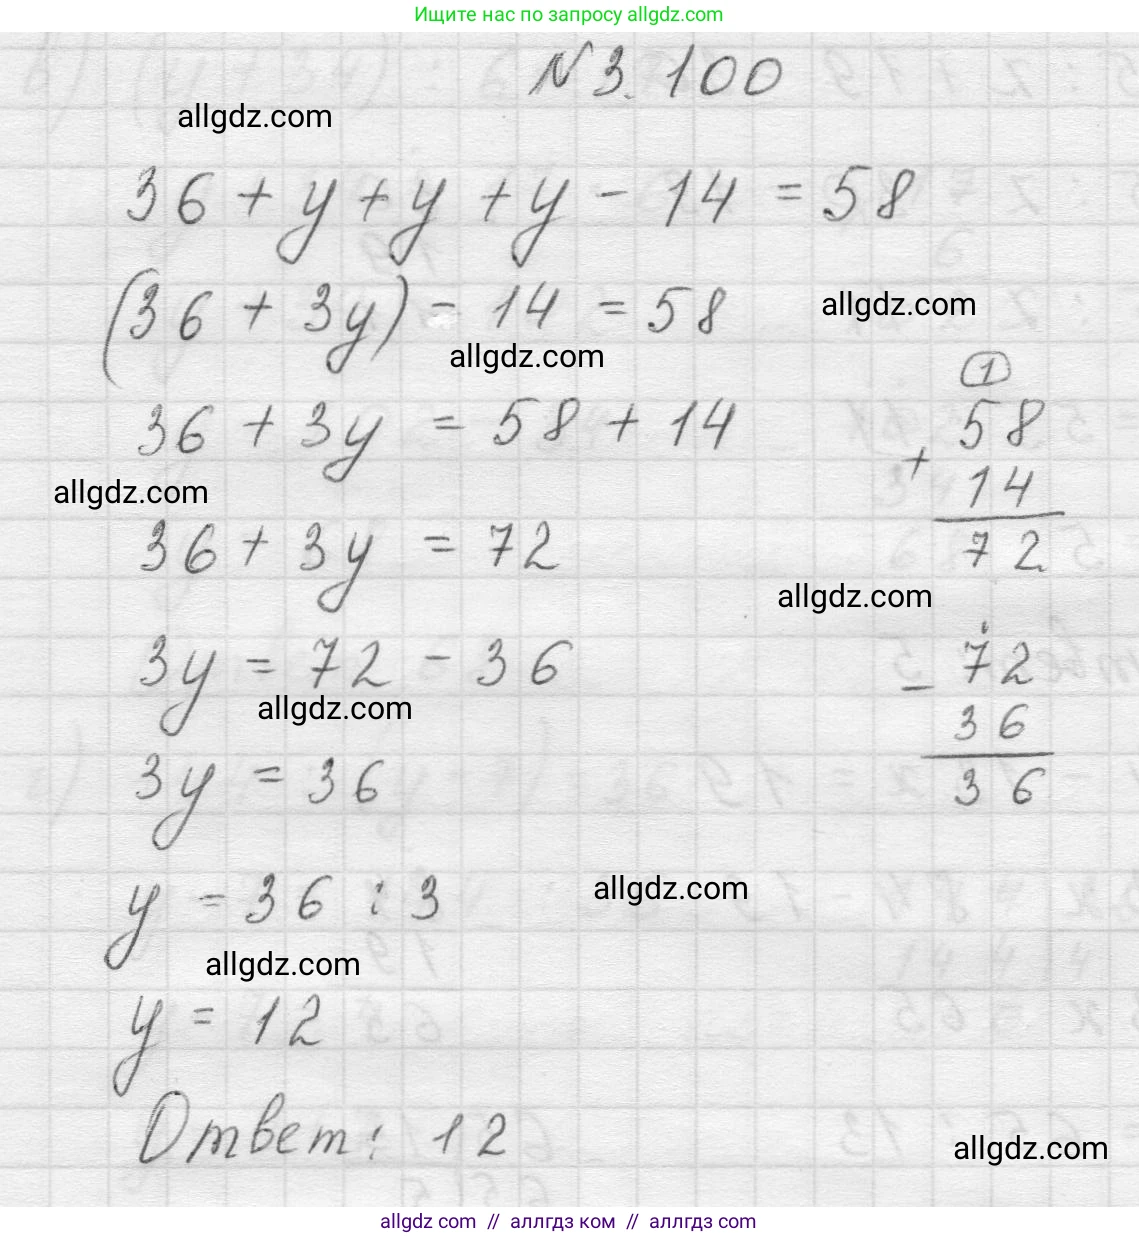 Ищите нас по запросу allgdz.com
N 3.100
allgdz.com
36 + y + y + y - 14 = 58
(36 + 3y) - 14 = 58
allgdz.com
allgdz.com
36 + 3y = 58 + 14
1
58
+
14
72
allgdz.com
36 + 3y = 72
allgdz.com
3y = 72 - 36
72
-
36
36
allgdz.com
3y = 36
y = 36 : 3
allgdz.com
allgdz.com
y = 12
Ответ: 12
allgdz.com
allgdz com // аллгдз ком // allgdz com